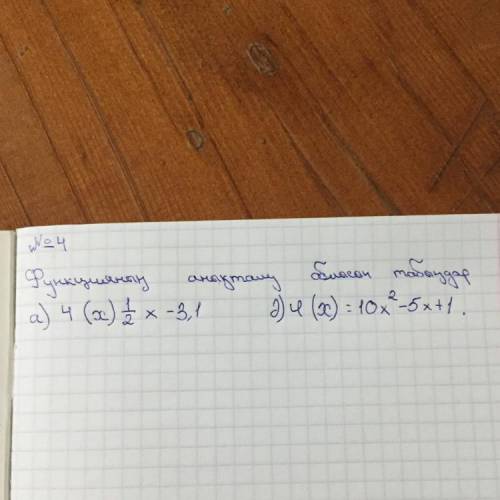 №4
Функцияның анықталу облосон табыңдар
а) 4 (x) 1/2 x -3,1 2) 4 (x) = 10x² -5x+1.